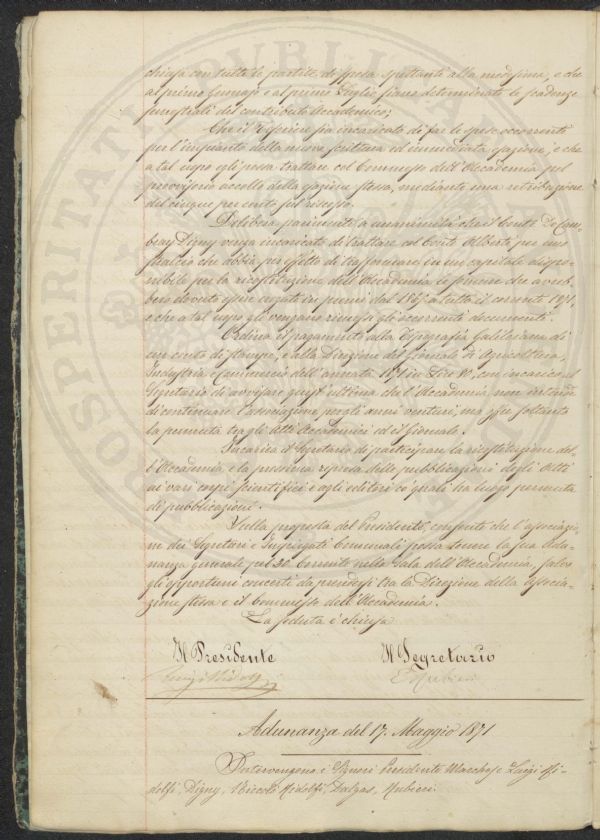 chiusa con tutte le partite di spesa spettanti alla medesima, e che
al primo Gennajo e al primo Luglio siano determinate le scadenze
semestrali del contributo Accademico;
Che il sia incaricato di far le spese occorrenti
per l'impianto della nuova scrittura ed immediata gazione, e che
a tal uopo egli possa trattare col Commesso dell'Accademia pel
provvisorio accollo della gazione stessa, mediante una retribuzione
del cinque per cento sul riscosso.
Delibera parimente a unanimità che il Conte
Digny venga incaricato di trattare col Conte Alberti per uno
stralcio che abbia per effetto di trasformare in un capitale dispo-
nibile per la ricostituzione dell'Accademia le somme che avreb-
bero dovuto esser erogate in premi dal a tutto il corrente 1871,
e che a tal uopo gli vengano rimessi gli occorrenti documenti.
Ordina il pagamento alla Tipografia Galileiana di
un conto di stampe, e alla Direzione del Giornale di Agricoltura,
Industria e Commercio dell'annata 1871 in Lire con incarico al
Segretario di avvisare quest'ultima che l'Accademia non intende
di continuare l'associazione per gli anni venturi, ma soltanto
la permuta tra gli Atti Accademici ed il Giornale.
Incarica il Segretario di partecipare la ricostituzione del-
l'Accademia e la prossima ripresa delle pubblicazioni degli Atti
ai vari corpi scientifici e agli editori co' quali ha luogo permuta
di pubblicazioni.
Sulla proposta del Presidente, consente che l'associazio-
ne dei Segretari e Impiegati Comunali possa tenere la sua Adu-
nanza generale pel 20 Corrente nella Sala dell'Accademia, salvo
gli opportuni concerti da prendersi tra la Direzione della Associa-
zione stessa e il Commesso dell'Accademia.
La seduta è chiusa
Il Presidente Il Segretario
Luigi Ridolfi E Rubieri
Adunanza del 17. Maggio 1871
Intervengono i Signori Presidente Marchese Luigi Ri-
dolfi, Digny, Niccolò Ridolfi, Dalgas, Rubieri.
PROSPERITATI PUBLICAE